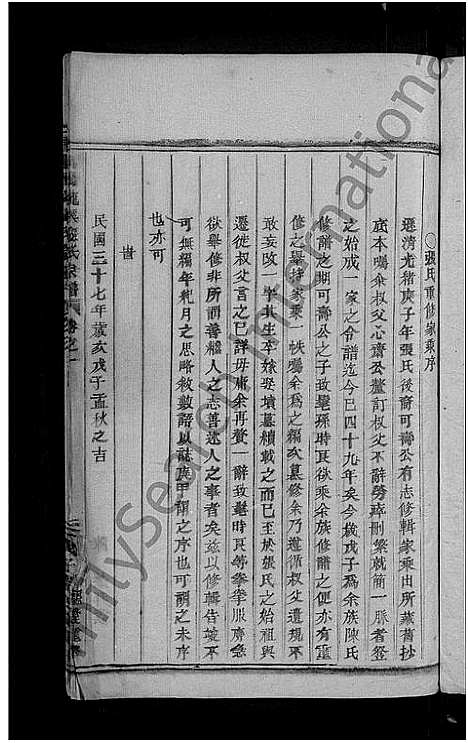 張氏重修家乘序
遜清光緒庚子年張氏後裔可壽公有志修輯家乘出所藏舊抄
底本囑余叔父心齋公釐訂叔父不辭勞瘁刪繁就簡一脈者登
之始成一家之令譜迄今已四十九年矣今歲戊子爲余族陳氏
修譜之期可壽公之子政毫孫時艮欲乘余族修譜之便亦有重
修之舉持家乘一帙囑余爲之編次纂修余乃遵循叔父遺規不
敢妄改一字其生卒嫁娶墳墓續載之而已至於張氏之始祖與
遷徙叔父言之已詳毋庸余再贅一辭政毫時艮等拳拳服膺急
欲舉修非所謂善繼人之志善述人之事者矣茲以修輯告竣不
可無編年紀月之思略敘數語以誌庚甲謂之序也可謂之未序
也亦可
旹
民國三十七年歲亥戊子孟秋之吉
張氏宗譜 卷之一
FamilySearch International